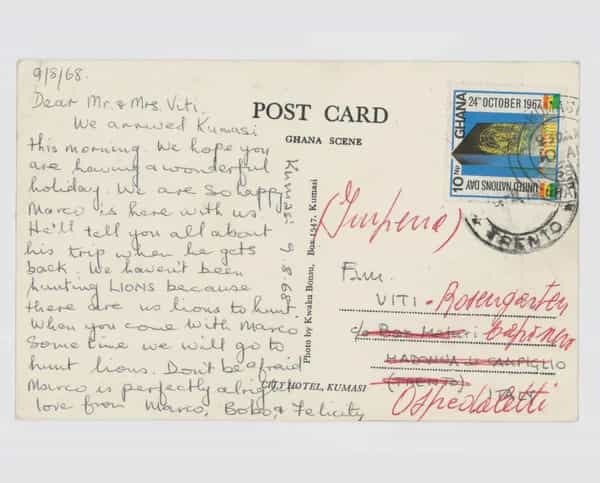 9/8/68.
Dear Mr. & Mrs. Viti.
We arrived Kumasi
this morning. We hope you
are having a wonderful
holiday. We are so happy
Marco is here with us
He'll tell you all about
his trip when he gets
back. We haven't been
hunting LIONS because
there are no lions to hunt.
When you come with Marco
Sometime we will go to
hunt lions. Don't be afraid
Marco is perfectly alright
love from Marco, Bobo, & Felicity
Kumasi 9.8.68
POST CARD
GHANA SCENE
Photo by Kwaku Bonsu, Box 1547, Kumasi
CITY HOTEL, KUMASI
GHANA
24TH OCTOBER 1967
10 NP
UNITED NATIONS DAY
TRENTO
(Imperia)
Fam.
VITI - Rosengarten
c/o
MADONNA di CAMPIGLIO
(TRENTO)
ITALY
Ospedaletti